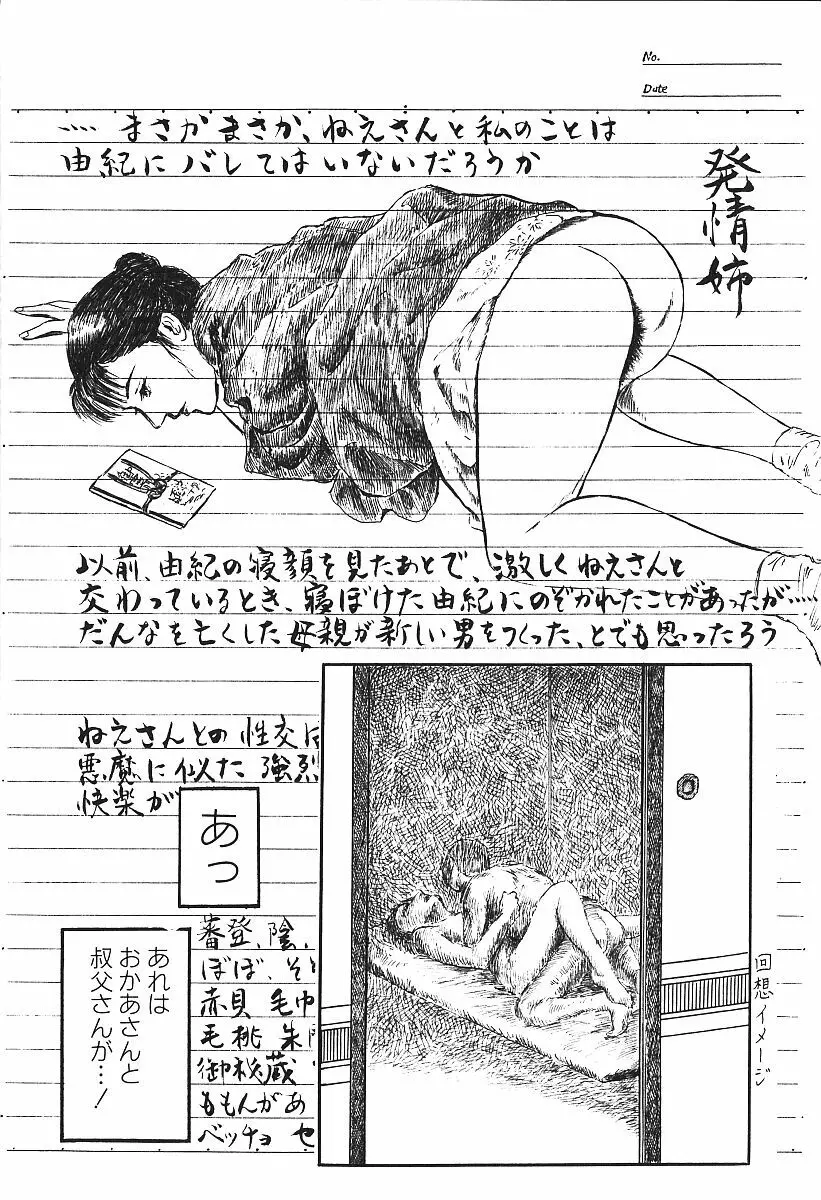 No.
Date
‥‥ まさかまさか、ねえさんと私のことは
由紀にバレてはいないだろうか
発情姉
以前、由紀の寝顔を見たあとで、激しくねえさんと
交わっているとき、寝ぼけた由紀にのぞかれたことがあったが‥‥
だんなを亡くした母親が新しい男をつくった、とでも思ったろう
ねえさんとの性交は
悪魔に似た強烈
快楽が
あっ
蕃登、陰、
ぼぼ、そ
赤貝 毛巾
毛桃 朱門
御秘蔵
ももんがあ
ベッチョ セ
あれは
おかあさんと
叔父さんが…!
回想イメージ